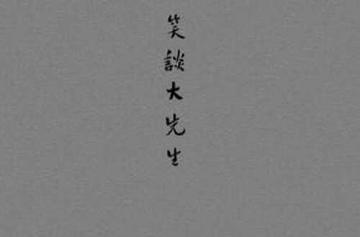 笑談大先生